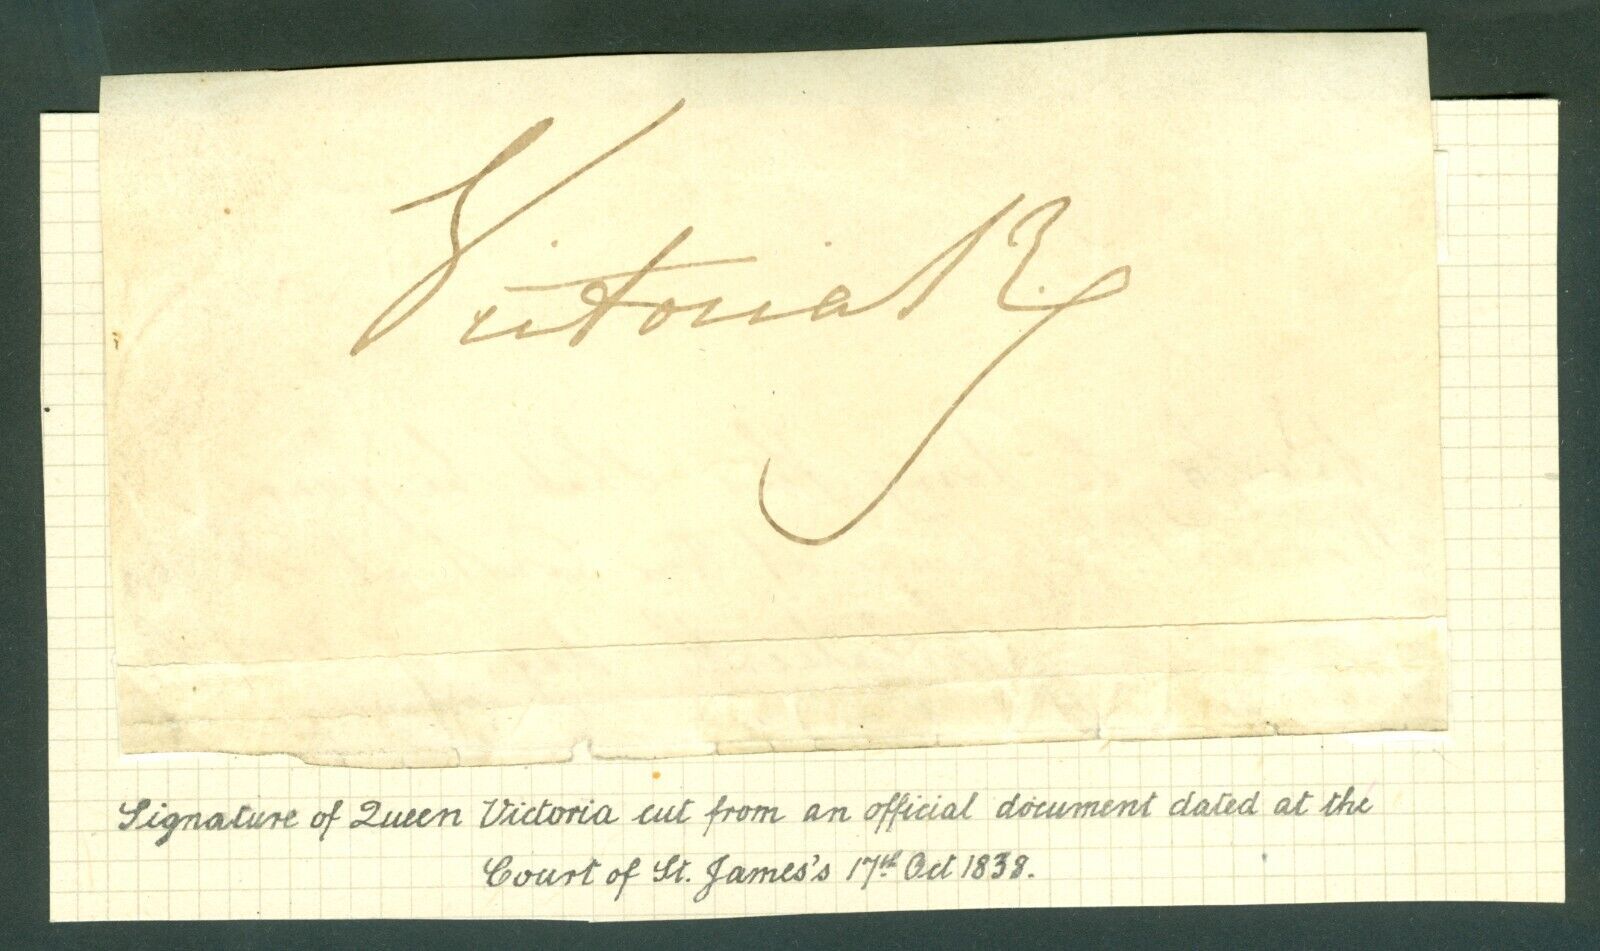 Victoria R
Signature of Queen Victoria cut from an official document dated at the
Court of St. James's 17th Oct 1838.